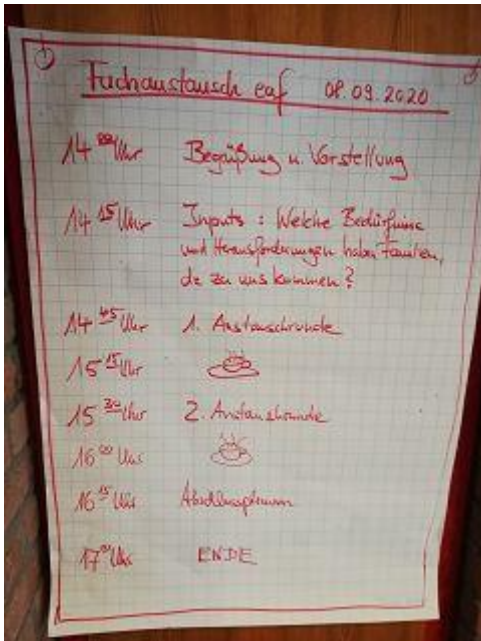 Fachaustausch eaf 08.09.2020
14 00 Uhr Begrüßung u. Vorstellung
14 15 Uhr Inputs : Welche Bedürfnisse
und Herausforderungen haben Familien,
die zu uns kommen?
14 45 Uhr 1. Austauschrunde
15 15 Uhr
15 30 Uhr 2. Austauschrunde
16 00 Uhr
16 15 Uhr Abschlussplenum
17 00 Uhr ENDE